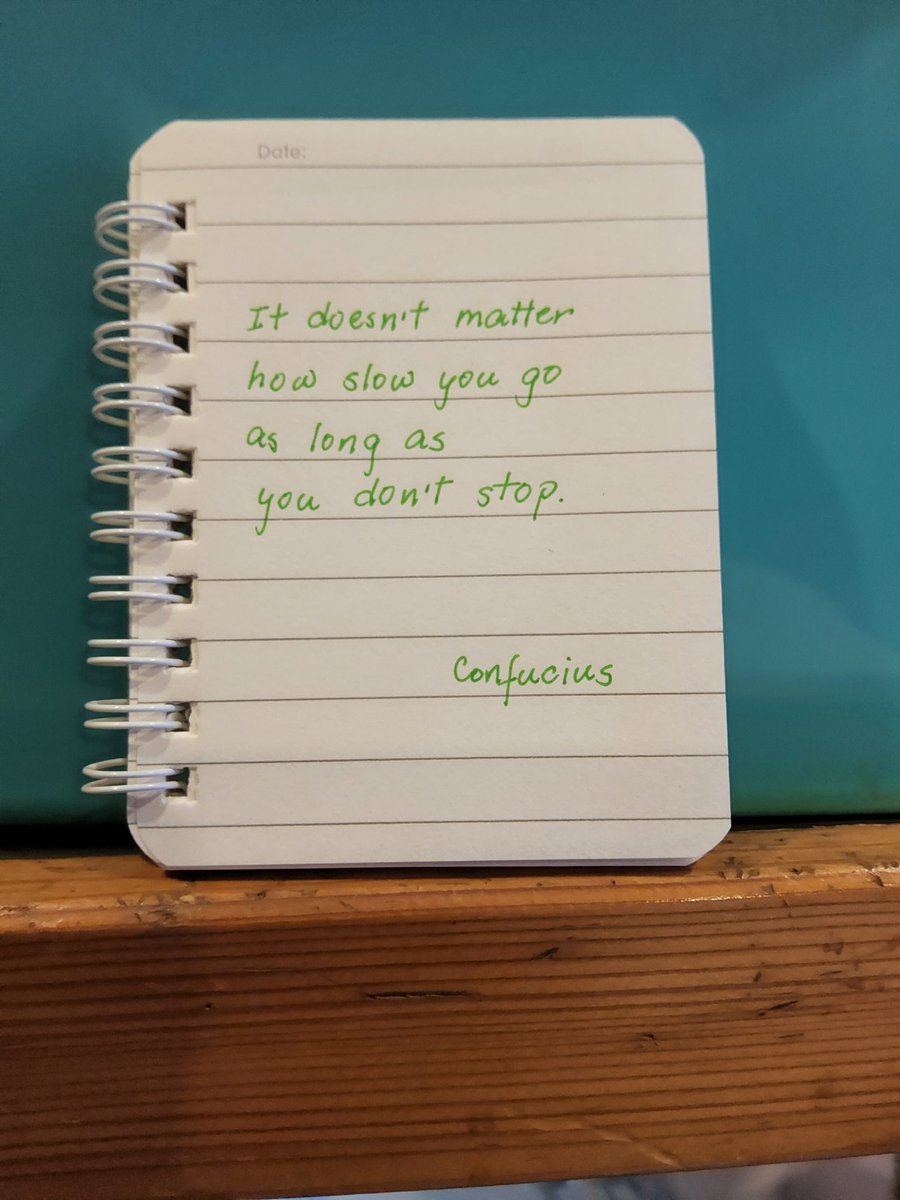 Date:
It doesn't matter
how slow you go
as long as
you don't stop.
Confucius